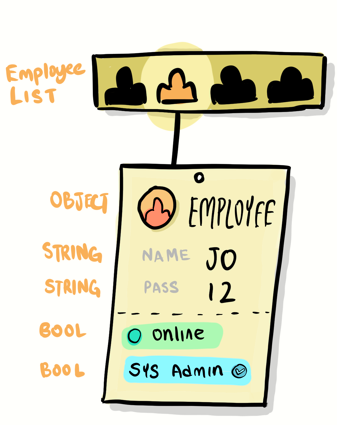 Employee
LIST
OBJECT EMPLOYEE
STRING NAME JO
STRING PASS 12
BOOL Online
BOOL SYS Admin